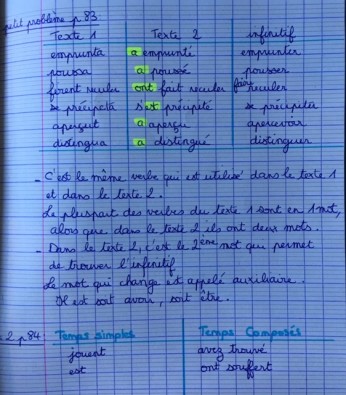 petit problème p 83
Texte 1 Texte 2 infinitif
emprunta a emprunté emprunter
poussa a poussé pousser
firent reculer ont fait reculer faire reculer
se précipita s'est précipité se précipiter
aperçut a aperçu apercevoir
distingua a distingué distinguer
- C'est le même verbe qui est utilisé dans le texte 1
et dans le texte 2.
Le pluspart des verbes du texte 1 sont en 1 mot,
alors que dans le texte 2 ils ont deux mots.
- Dans le texte 2, c'est le 2ème mot qui permet
de trouver l'infinitif
Le mot qui change est appelé auxiliaire.
Il est soit avoir, soit être.
2 p 84 Temps simples Temps Composés
jouent avez trouvé
est ont souffert